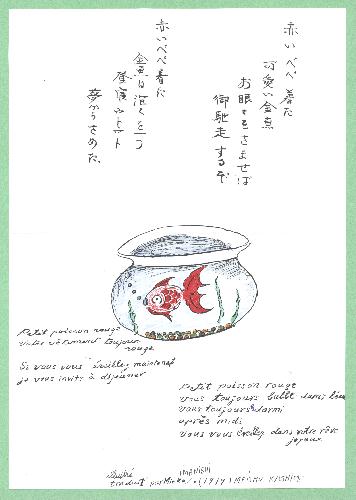 赤いべべ着た
可愛い金魚
お眼々をさませば
御馳走するぞ
赤いべべ着た
金魚は泡を一つ
昼寝うとうと
夢からさめた
Petit poisson rouge
votre vêtement toujour
rouge
Si vous vous éveillez maintenant
je vous invite à déjeuner
Petit poisson rouge
vous toujours bulle dans l'eau
vous toujours dormi
après midi
vous vous éveillez dans votre rêve
joyeux
IMANISHI
traduit par